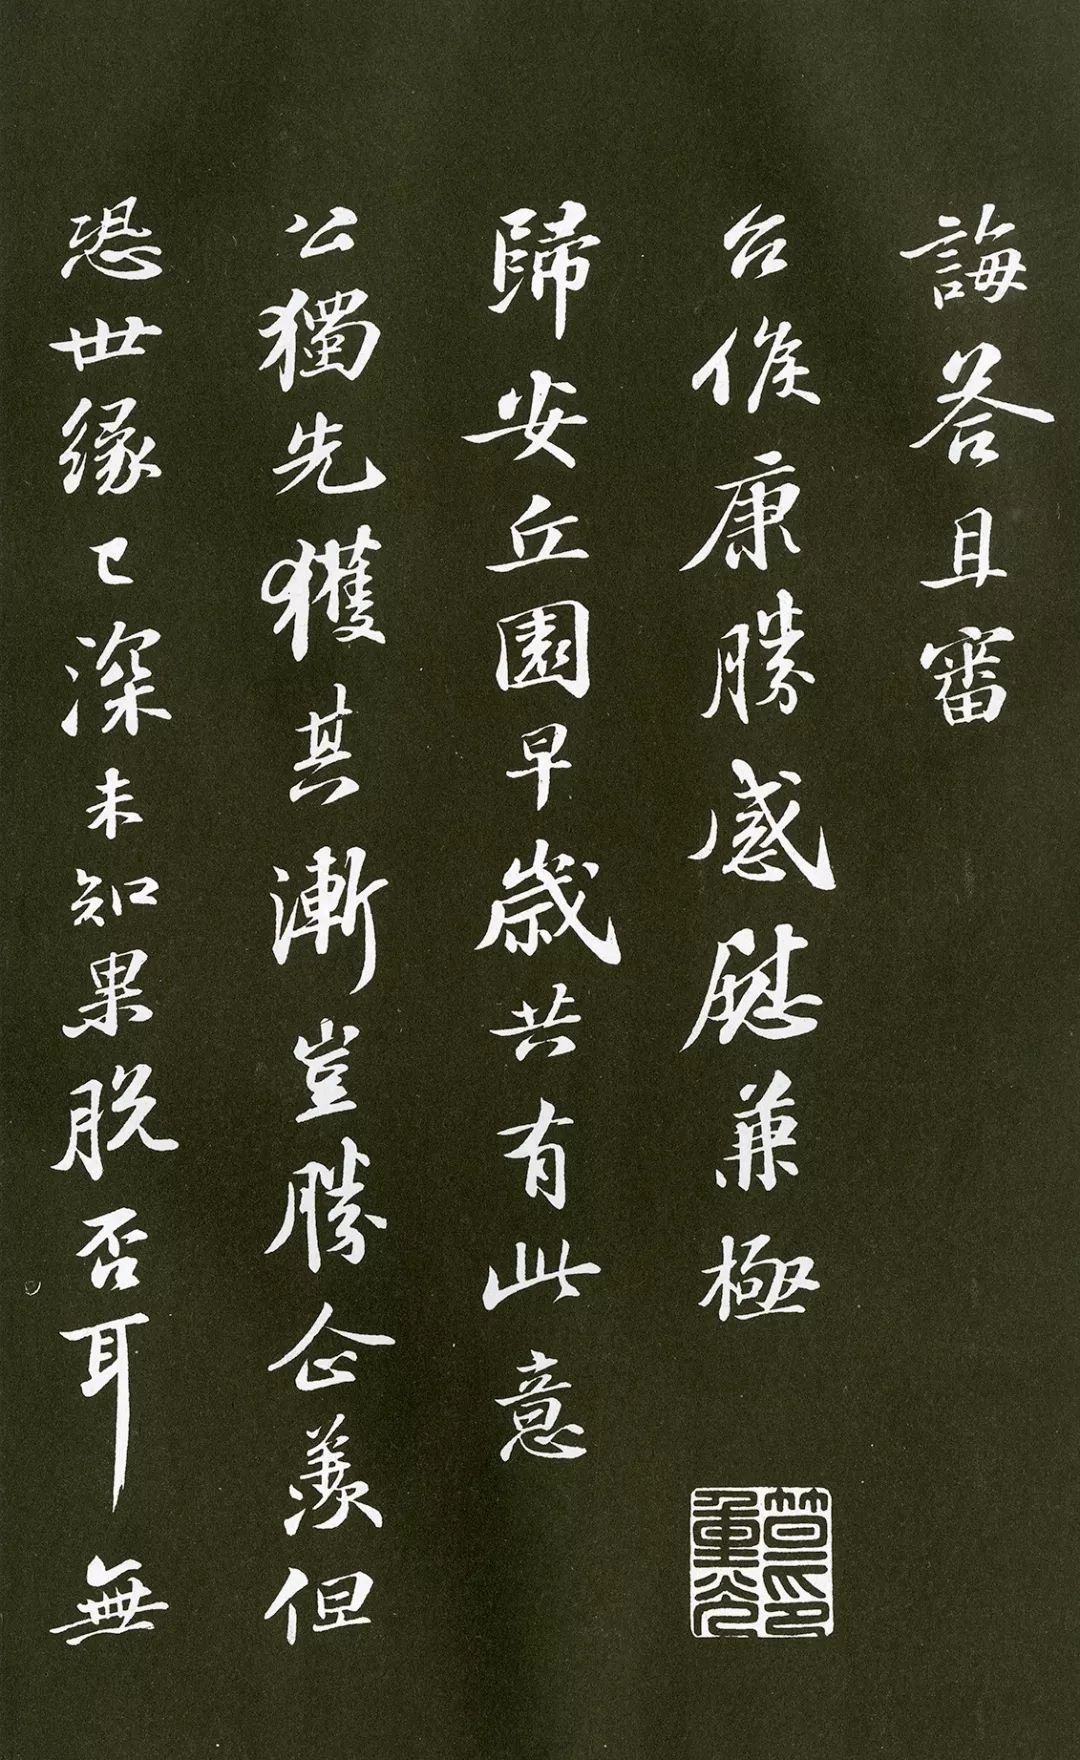 誨答且審
台候康勝感慰兼極
歸安丘園早歲共有此意
公獨先獲其漸豈勝企羨但
恐世緣已深未知果脫否耳無